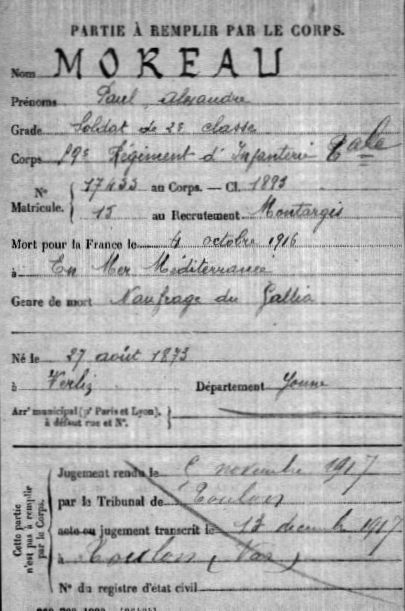 PARTIE À REMPLIR PAR LE CORPS.
Nom MOREAU
Prénoms Paul, Alexandre
Grade Soldat de 2e classe
Corps 19e Régiment d'Infanterie Cale
N° Matricule. 17433 au Corps. — Cl. 1893
15 au Recrutement Montargis
Mort pour la France le 4 octobre 1916
à En Mer Méditerranée
Genre de mort Naufrage du Gallia
Né le 27 août 1873
à Verliz Département Yonne
Arr' municipal (p' Paris et Lyon),
à défaut rue et N°.
Cette partie n'est pas à remplir par le Corps.
Jugement rendu le novembre 1917
par le Tribunal de Toulon
acte ou jugement transcrit le 13 décembre 1917
à Toulon (Var)
N° du registre d'état civil